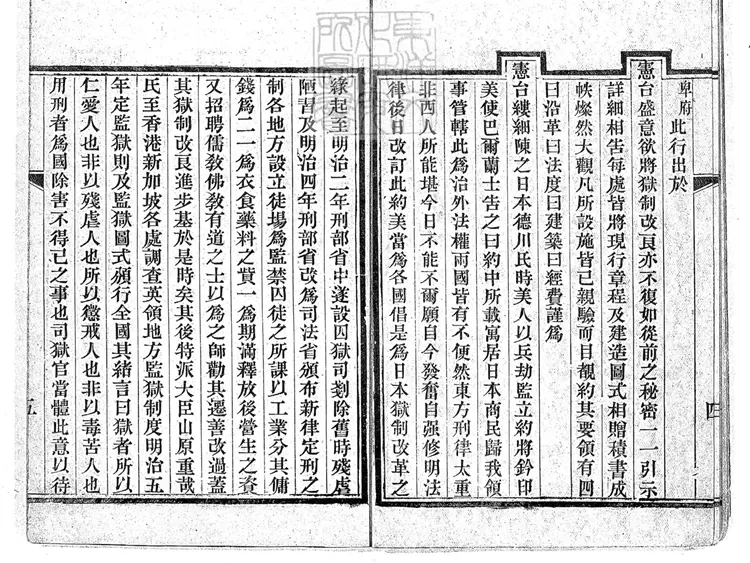 卑府此行出於
憲台盛意欲將獄制改良亦不復如從前之秘密一一引示
詳細相告每處皆將現行章程及建造圖式相贈積書成
帙燦然大觀凡所設施皆已親驗而目覩約其要領有四
曰沿革曰法度曰建築曰經費謹爲
憲台縷細陳之日本德川氏時美人以兵劫監立約將鈐印
美使巴爾蘭士告之曰約中所載寓居日本商民歸我領
事管轄此爲治外法權兩國皆有不便然東方刑律太重
非西人所能堪今日不能不爾願自今發奮自强修明法
律後日改訂此約美當爲各國倡是爲日本獄制改革之
四
緣起至明治二年刑部省中遂設囚獄司剗除舊時殘虐
陋習及明治四年刑部省改爲司法省頒布新律定刑之
制各地方設立徒場爲監禁囚徒之所課以工業分其傭
錢爲二一爲衣食藥料之貲一爲期滿釋放後營生之資
又招聘儒敎佛敎有道之士以爲之師勸其遷善改過蓋
其獄制改良進步基於是時矣其後特派大臣山原重哉
氏至香港新加坡各處調查英領地方監獄制度明治五
年定監獄則及監獄圖式頒行全國其緒言曰獄者所以
仁愛人也非以殘虐人也所以懲戒人也非以毒苦人也
用刑者爲國除害不得已之事也司獄官當體此意以待
五